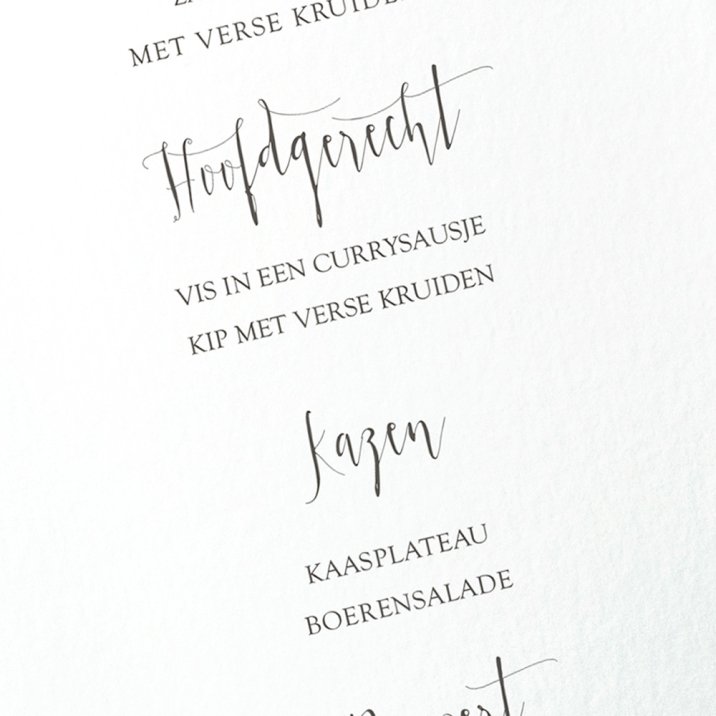 MET VERSE KRUIDEN
Hoofdgerecht
VIS IN EEN CURRYSAUSJE
KIP MET VERSE KRUIDEN
Kazen
KAASPLATEAU
BOERENSALADE